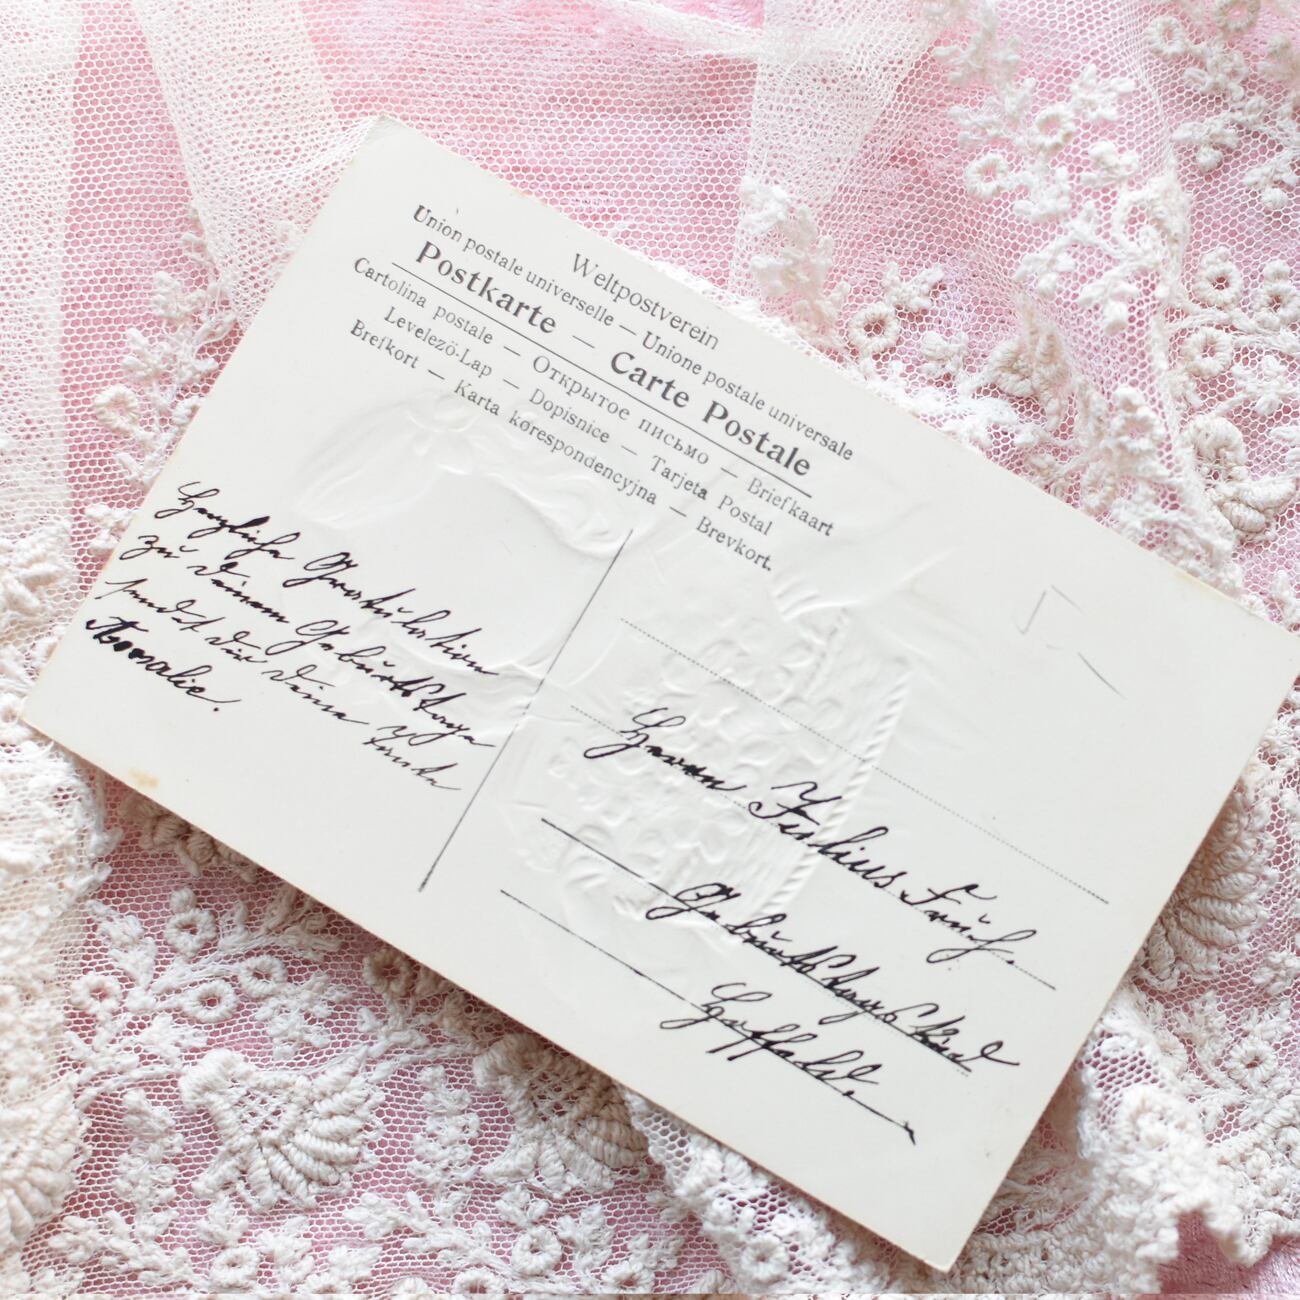 Weltpostverein
Union postale universelle — Unione postale universale
Postkarte — Carte Postale
Cartolina postale — Открытое письмо — Briefkaart
Levelezö-Lap — Dopisnice — Tarjeta Postal
Brefkort — Karta korespondencyjna — Brevkort.
Herzliche Gratulation
zu deinem Geburtstage
sendet dir deine Tante
Rosalie.
Herrn Julius Früh.
Geburtstagskind